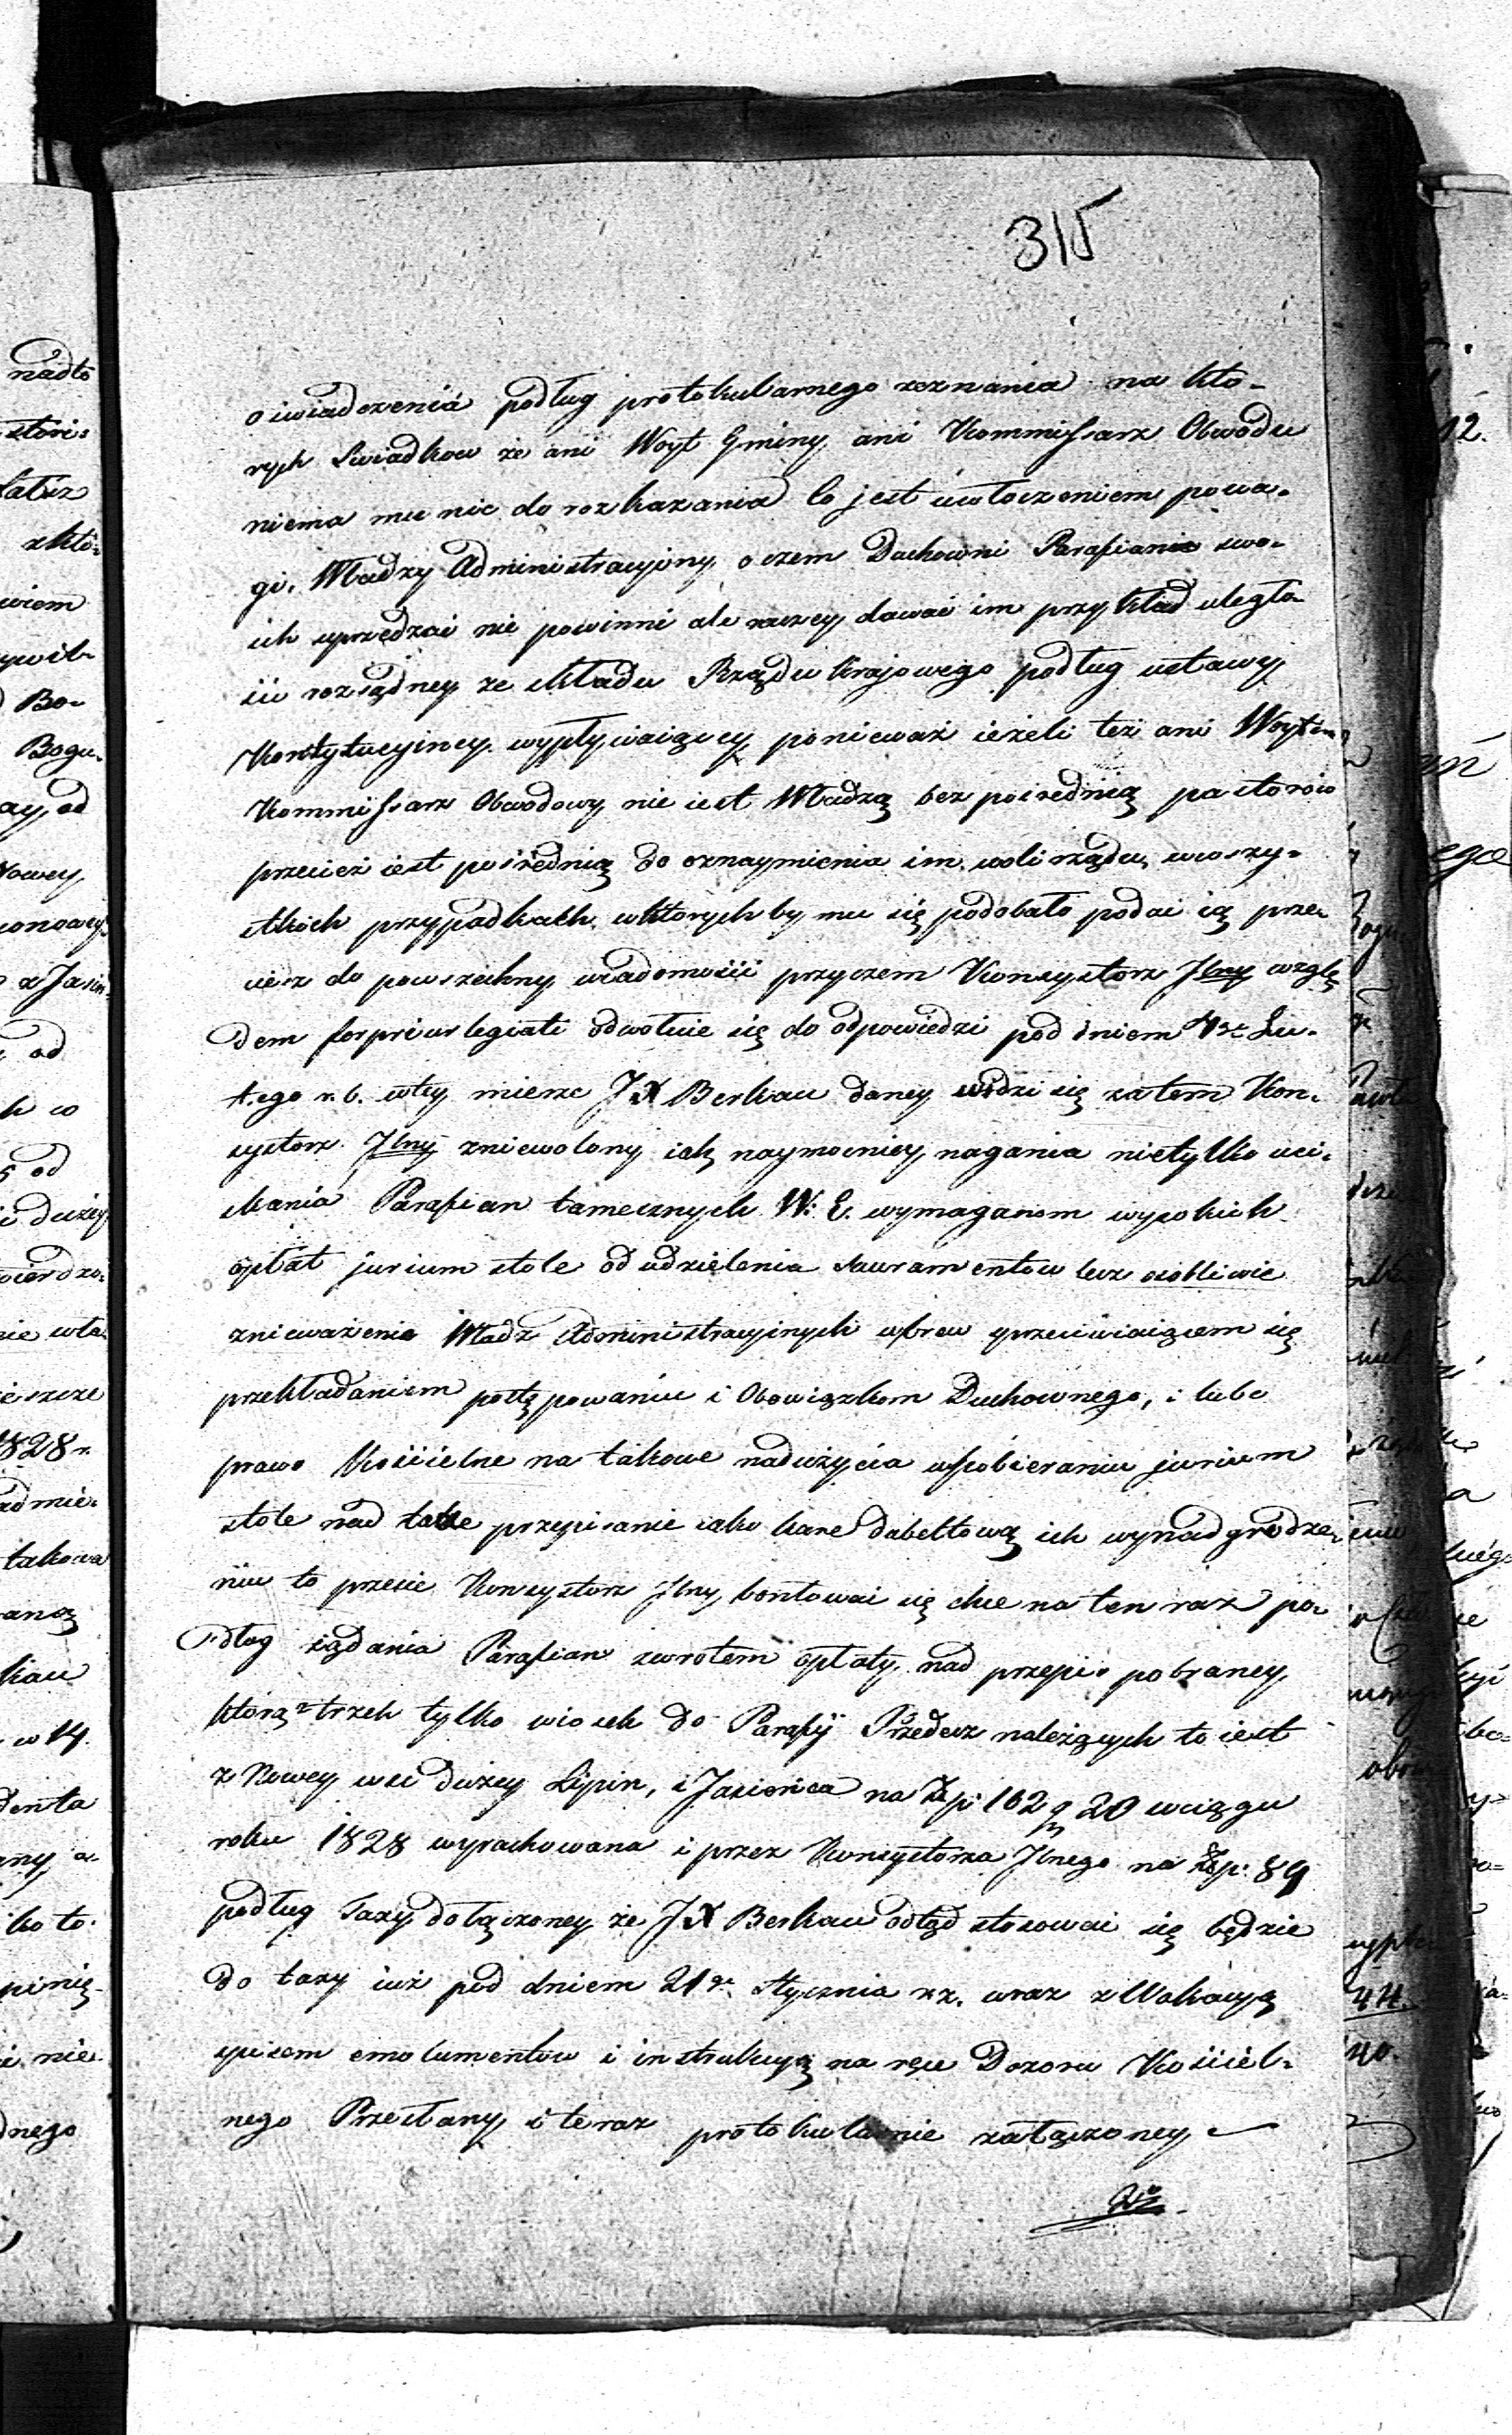 315
oswiadczenia podług protokularnego zeznania na kto-
rych Swiadkow że ani Woyt Gminy ani Kommissarz Obwodu
niema mu nic do rozkazania Co jest uwłoczeniem powa-
gi Władzy Administracyiny o czem Duchowni Parafianie swo-
ich uprzedzać nie powinni ale raczey dawać im przykład uległo-
ści rozsądney ze składu Rządu Krajowego podług ustawy
Konstytucyiney wypływaiącey ponieważ ieżeli też ani Woyt ani
Kommissarz Obwodowy nie iest Władzą bezpośrednią pastorów
przecież iest pośrednią do oznaymienia im woli rządu, wewszy-
stkich przypadkach, w których by mu się podobało podać ią prze-
ciesz do powszechny wiadomości przyczem Konsystorz Jlny wzglę
dem odwołuie się do odpowiedzi pod dniem 4go Lu-
tego r. b. wtey mierze JX Berkau daney widzi się zatem Kon-
systorz Jlny zniewolony iak naymocniey nagania nietylko uci-
skania Parafian tamecznych W: E. wymaganiom wysokich
opłat jurium stole od udzielenia Sacramentow lecz osobliwie
znieważenia Władz Administracyinych wbrew przeciwiaiącem się
przekładaniem postępowaniu i Obowiązkom Duchownego, i lubo
prawo Kościelne na takowe nadużycia wpobieraniu jurium
stole nad taxe przepisanie iako kare dubeltową ich wynadgrodze-
niu to przecie Konsystorz Jlny kontować się chce na ten raz po-
dług żądania Parafian zwrotem opłaty nad przepis pobraney,
którą z trzech tylko wiosek do Parafij Przedecz należących to iest
z Nowey wsi dużey Lipin, i Jasieńca na Złp: 162 g 20 wciągu
roku 1828 wyrachowana i przez Konsystorza Jlnego na Złp: 89
podług Taxy dołączoney że JX Berkau odtąd stosować się będzie
do taxy iuż pod dniem 21go Stycznia r.z. wraz z Wokacyą
spisem emolumentow i instrukcyą na ręce Dozoru Kościel-
nego Przesłany i teraz protokularnie załączoney